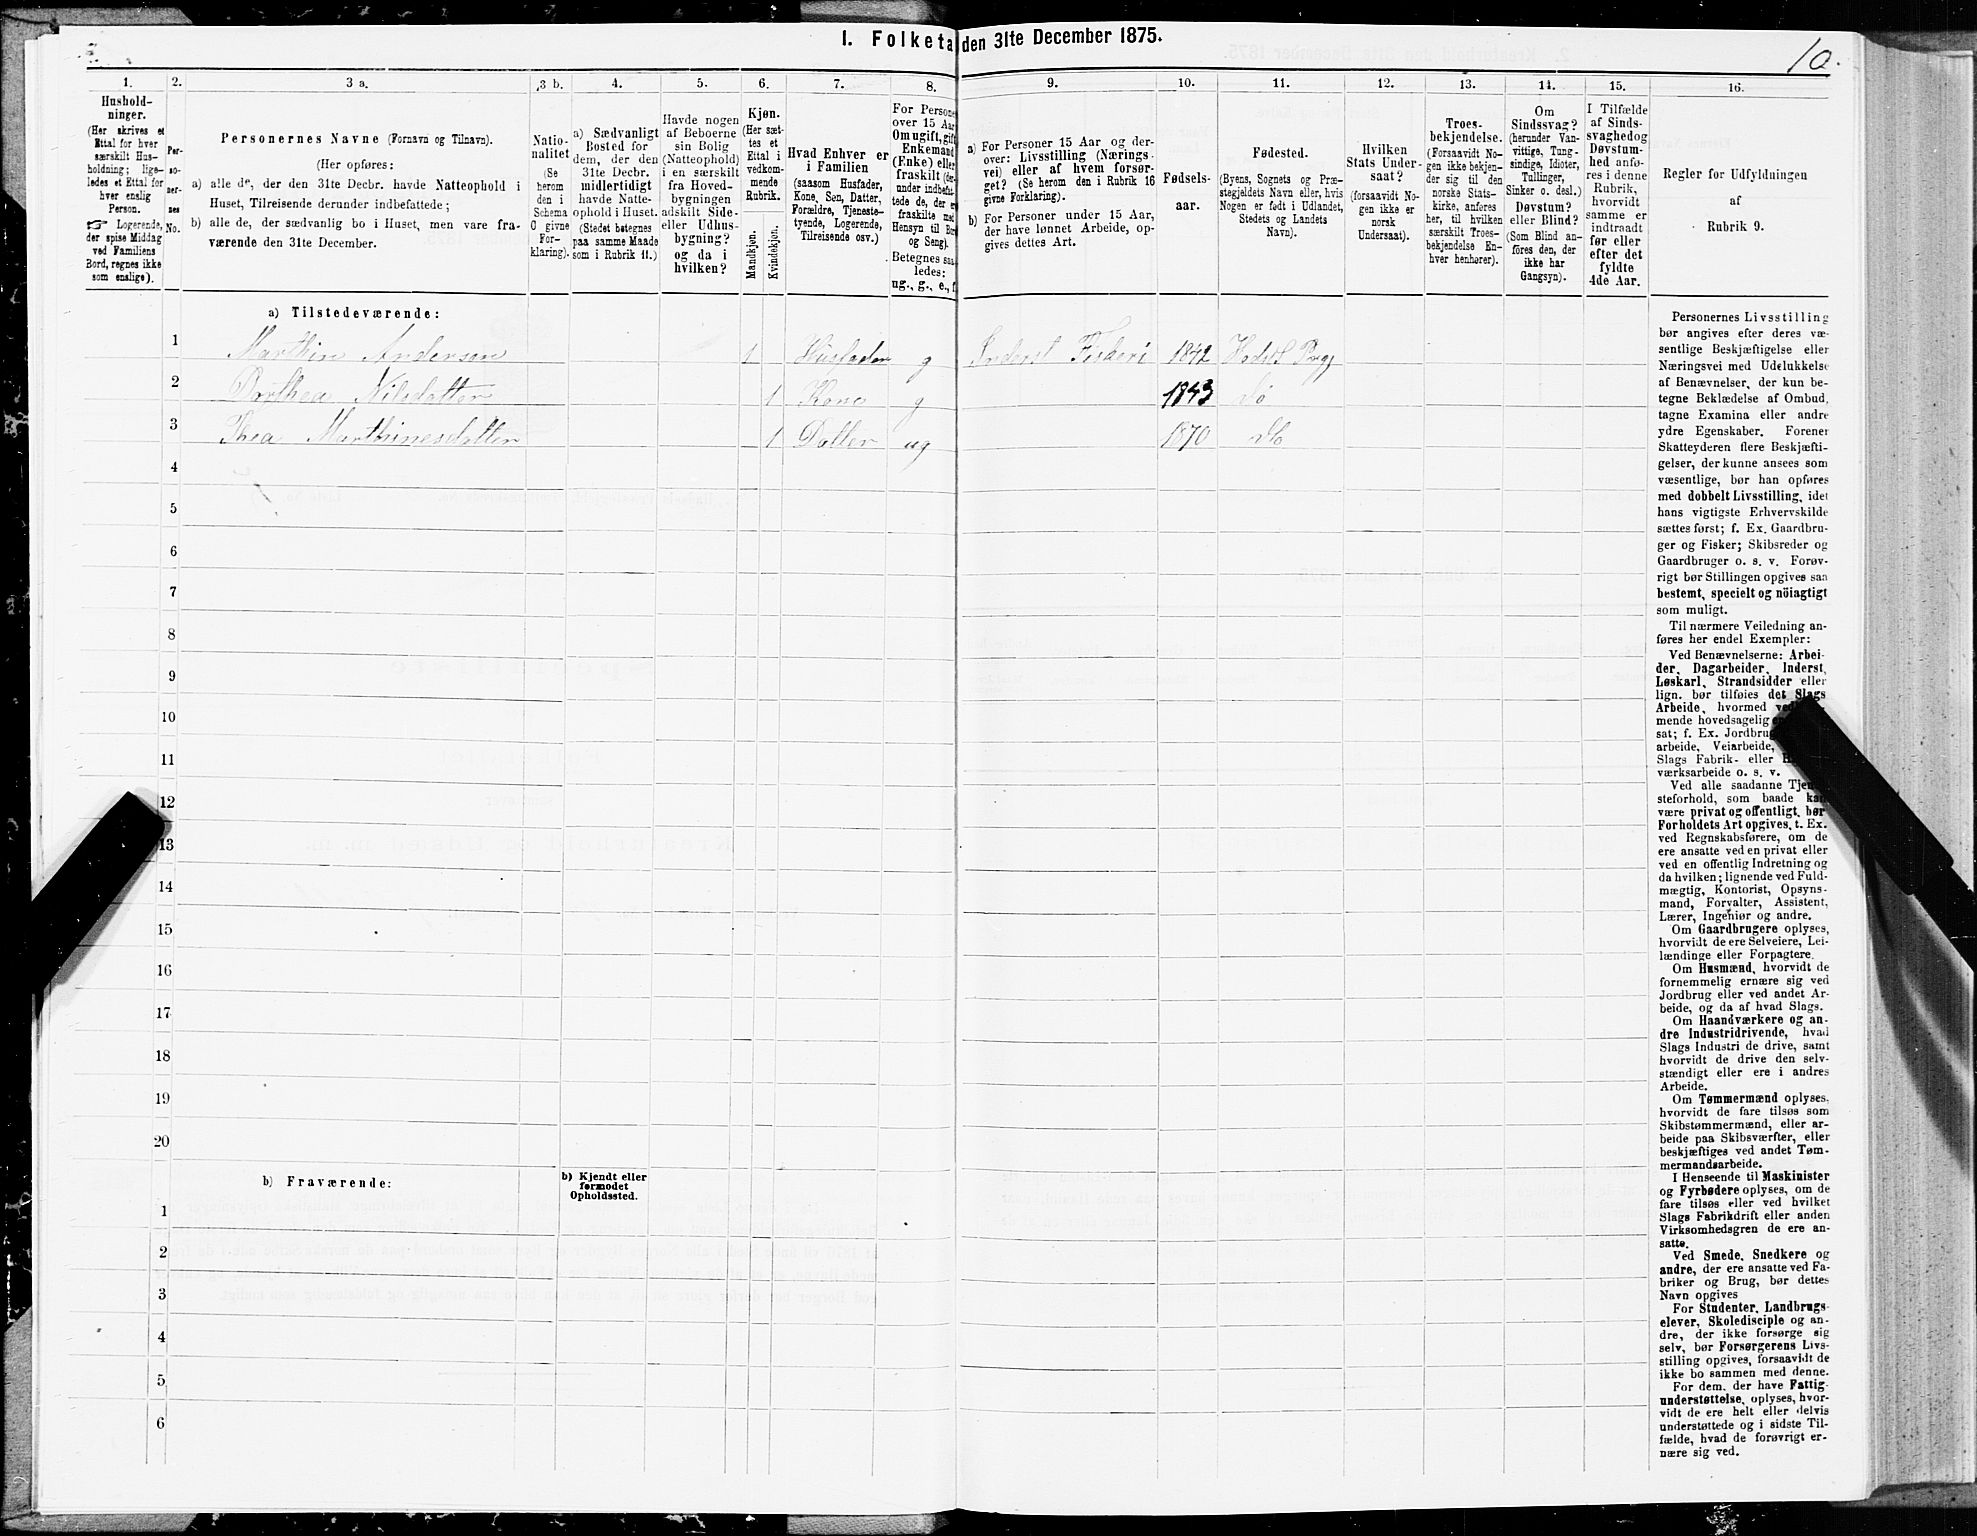 I. Folketa den 31te December 1875.
10.
1.
Hushold-
ninger.
(Her skrives et
Ettal for hver
særskilt Hus-
holdning; lige-
ledes et Ettal for
hver enslig
Person.
☞ Logerende,
der spise Middag
ved Familiens
Bord, regnes ikke
som enslige).
2.
Per-
so-
ner-
nes
No.
3 a.
Personernes Navne (Fornavn og Tilnavn).
(Her opføres:
a) alle de, der den 31te Decbr. havde Natteophold i
Huset, Tilreisende derunder indbefattede;
b) alle de, der sædvanlig bo i Huset, men vare fra-
værende den 31te December.
3 b.
Natio-
nalitet
(Se
herom
den i
Schema
O givne
For-
klaring).
4.
a) Sædvanligt
Bosted for
dem, der den
31te Decbr.
midlertidigt
havde Natte-
ophold i Huset.
(Stedet betegnes
paa samme Maade
som i Rubrik 11.)
5.
Havde nogen
af Beboerne
sin Bolig
(Natteophold)
i en særskilt
fra Hoved-
bygningen
adskilt Side-
eller Udhus-
bygning?
og da i
hvilken?
6.
Kjøn.
(Her sæt-
tes et
Ettal i
vedkom-
mende
Rubrik.
Mandkjøn.
Kvindekjøn.
7.
Hvad Enhver er
i Familien
(saasom Husfader,
Kone, Søn, Datter,
Forældre, Tjeneste-
tyende, Logerende,
Tilreisende osv.)
8.
For Persone
over 15 Aar
Om ugift, gift
Enkemand
(Enke) eller
fraskilt (der-
under indbefat-
tede de, der e
fraskilte med
Hensyn til Bo
og Seng).
Betegnes saa
ledes:
ug., g., e., f
9.
a) For Personer 15 Aar og der-
over: Livsstilling (Nærings-
vei) eller af hvem forsør-
get? (Se herom den i Rubrik 16
givne Forklaring).
b) For Personer under 15 Aar,
der have lønnet Arbeide, op-
gives dettes Art.
10.
Fødsels-
aar.
11.
Fødested.
(Byens, Sognets og Præ-
stegjeldets Navn eller, hvis
Nogen er født i Udlandet,
Stedets og Landets
Navn).
12.
Hvilken
Stats Under-
saat?
(forsaavidt No-
gen ikke er
norsk
Undersaat).
13.
Troes-
bekjendelse.
(Forsaavidt No-
gen ikke bekjen-
der sig til den
norske Stats-
kirke, anføres
her, til hvilken
særskilt Troes-
bekjendelse En-
hver henhører).
14.
Om
Sindssvag?
(herunder Van-
vittige, Tung-
sindige, Idioter,
Tullinger,
Sinker o. desl.)
Døvstum?
eller Blind?
(Som Blind an-
føres den, der
ikke har
Gangsyn).
15.
I Tilfælde
af Sinds-
svaghed og
Døvstum-
hed anfø-
res i denne
Rubrik,
hvorvidt
samme er
indtraadt
før eller
efter det
fyldte
4de Aar.
16.
Regler for Udfyldningen
af
Rubrik 9.
a) Tilstedeværende:
1 Marthin Andersen 1 Husfader g Inderst Fiskeri 1842 Hadsel Prgj
2 Dorthea Nilsdatter 1 Kone g 1843 Do
3 Thea Marthinesdatter 1 Datter ug 1870 Do
4
5
6
7
8
9
10
11
12
13
14
15
16
17
18
19
20
b) Fraværende:
b) Kjendt eller
formodet
Opholdssted.
1
2
3
4
5
6
Personernes Livsstilling
bør angives efter deres væ-
sentlige Beskjæftigelse eller
Næringsvei med Udelukkelse
af Benævnelser, der kun be-
tegne Beklædelse af Ombud,
tagne Examina eller andre
ydre Egenskaber. Forener
Skatteyderen flere Beskjæfti-
gelser, der kunne ansees som
væsentlige, bør han opføres
med dobbelt Livsstilling, idet
hans vigtigste Erhvervskilde
sættes først; f. Ex. Gaardbru-
ger og Fisker; Skibsreder og
Gaardbruger o. s. v. Forøv-
rigt bør Stillingen opgives saa
bestemt, specielt og nöiagtigt
som muligt.
Til nærmere Veiledning an-
føres her endel Exempler:
Ved Benævnelserne: Arbei-
der, Dagarbeider, Inderst,
Løskarl, Strandsidder eller
lign. bør tilføies det Slags
Arbeide, hvormed ved
mende hovedsagelig e
sat; f. Ex. Jordbru
arbeide, Veiarbeide,
Slags Fabrik- eller H
værksarbeide o. s. v.
Ved alle saadanne Tjen
steforhold, som baade kan
være privat og offentligt, bør
Forholdets Art opgives, t. Ex.
ved Regnskabsførere, om de
ere ansatte ved en privat eller
ved en offentlig Indretning og
da hvilken; lignende ved Fuld-
mægtig, Kontorist, Opsyns-
mand, Forvalter, Assistent,
Lærer, Ingeniør og andre.
Om Gaardbrugere oplyses,
hvorvidt de ere Selveiere, Lei-
lændinge eller Forpagtere.
Om Husmænd, hvorvidt de
fornemmelig ernære sig ved
Jordbrug eller ved andet Ar-
beide, og da af hvad Slags.
Om Haandværkere og an-
dre Industridrivende, hvad
Slags Industri de drive, samt
hvorvidt de drive den selv-
stændigt eller ere i andres
Arbeide.
Om Tømmermænd oplyses,
hvorvidt de fare tilsøs som
Skibstømmermænd, eller ar-
beide paa Skibsværfter, eller
beskjæftiges ved andet Tøm-
mermandsarbeide.
I Henseende til Maskinister
og Fyrbødere oplyses, om de
fare tilsøs eller ved hvilket
Slags Fabrikdrift eller anden
Virksomhedsgren de ere an-
satte.
Ved Smede, Snedkere og
andre, der ere ansatte ved Fa-
briker og Brug, bør dettes
Navn opgives
For Studenter, Landbrugs-
elever, Skoledisciple og an-
dre, der ikke forsørge sig
selv, bør Forsørgerens Livs-
stilling opgives, forsaavidt de
ikke bo sammen med denne.
For dem, der have Fattig-
understøttelse, oplyses, hvor-
vidt de ere helt eller delvis
understøttede og i sidste Til-
fælde, hvad de forøvrigt er-
nære sig ved.